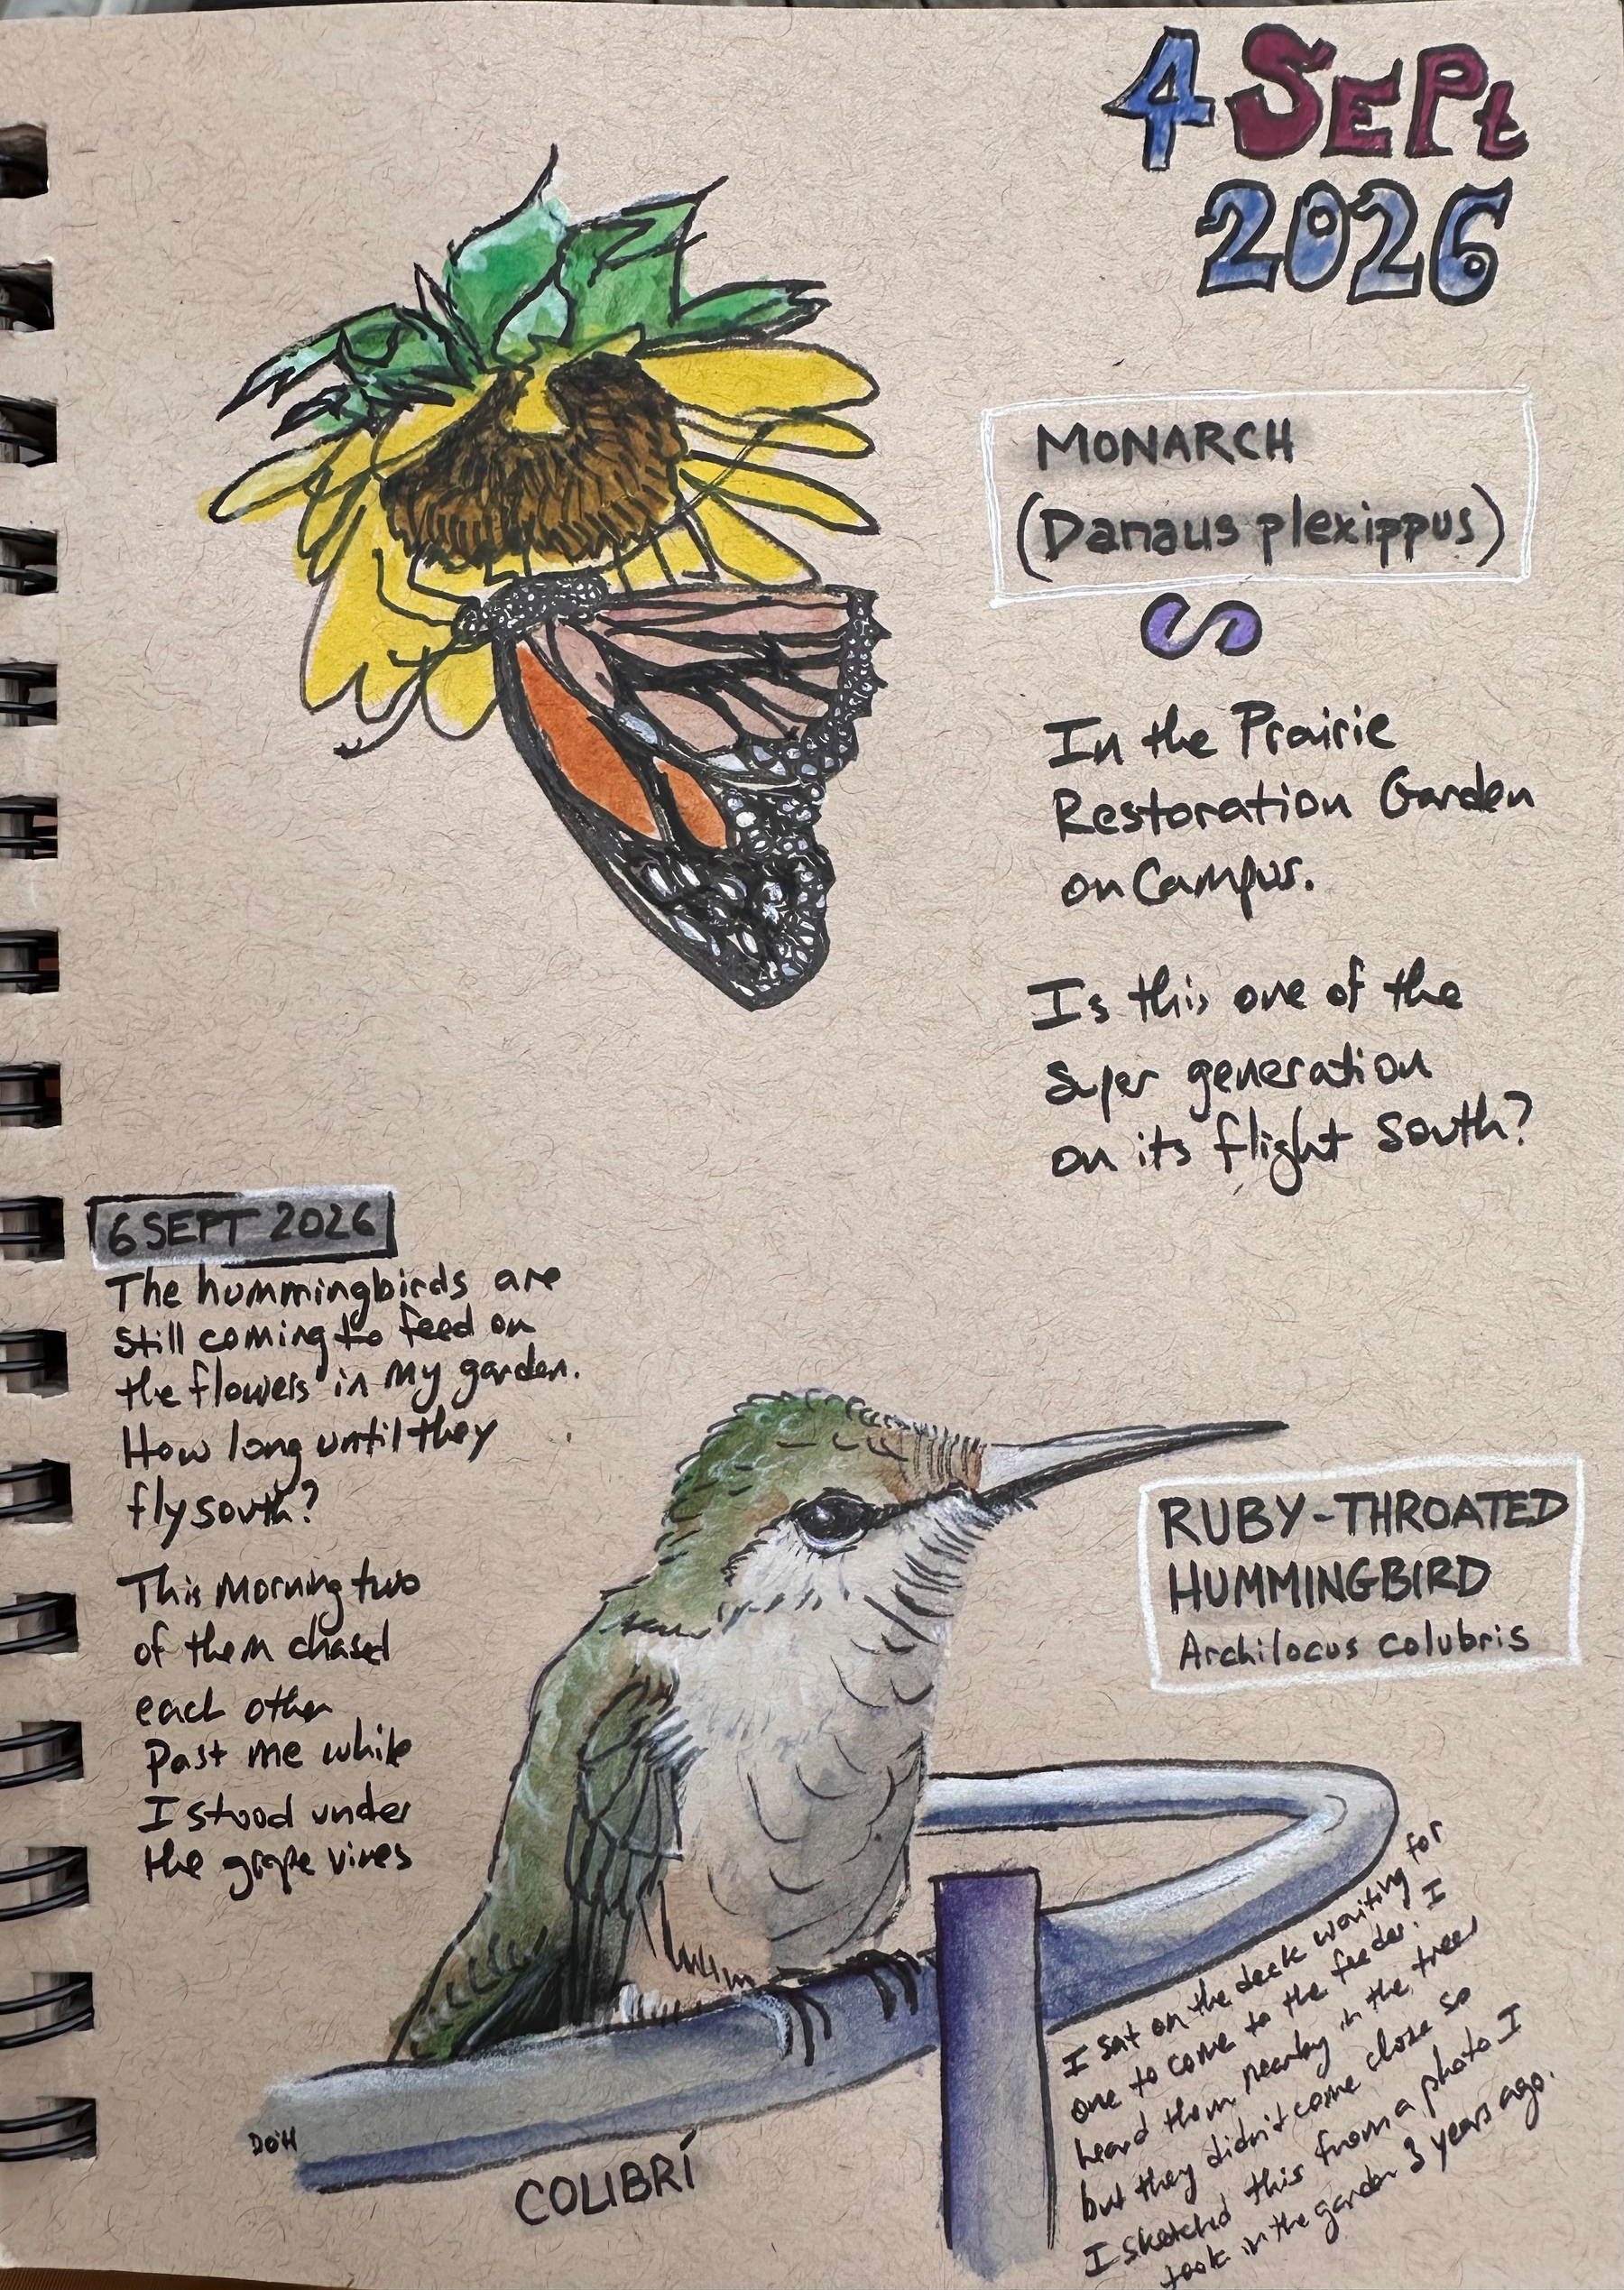 4 SEPt
2026
MONARCH
(Danaus plexippus)
In the Prairie
Restoration Garden
on Campus.
Is this one of the
super generation
on its flight south?
6 SEPT 2026
The hummingbirds are
still coming to feed on
the flowers in my garden.
How long until they
fly south?
This morning two
of them chased
each other
Past me while
I stood under
the grape vines
RUBY-THROATED
HUMMINGBIRD
Archilocus colubris
I sat on the deck waiting for
one to come to the feeder. I
heard them nearby in the trees
but they didn't come close so
I sketched this from a photo I
took in the garden 3 years ago.
DO'H
COLIBRÍ